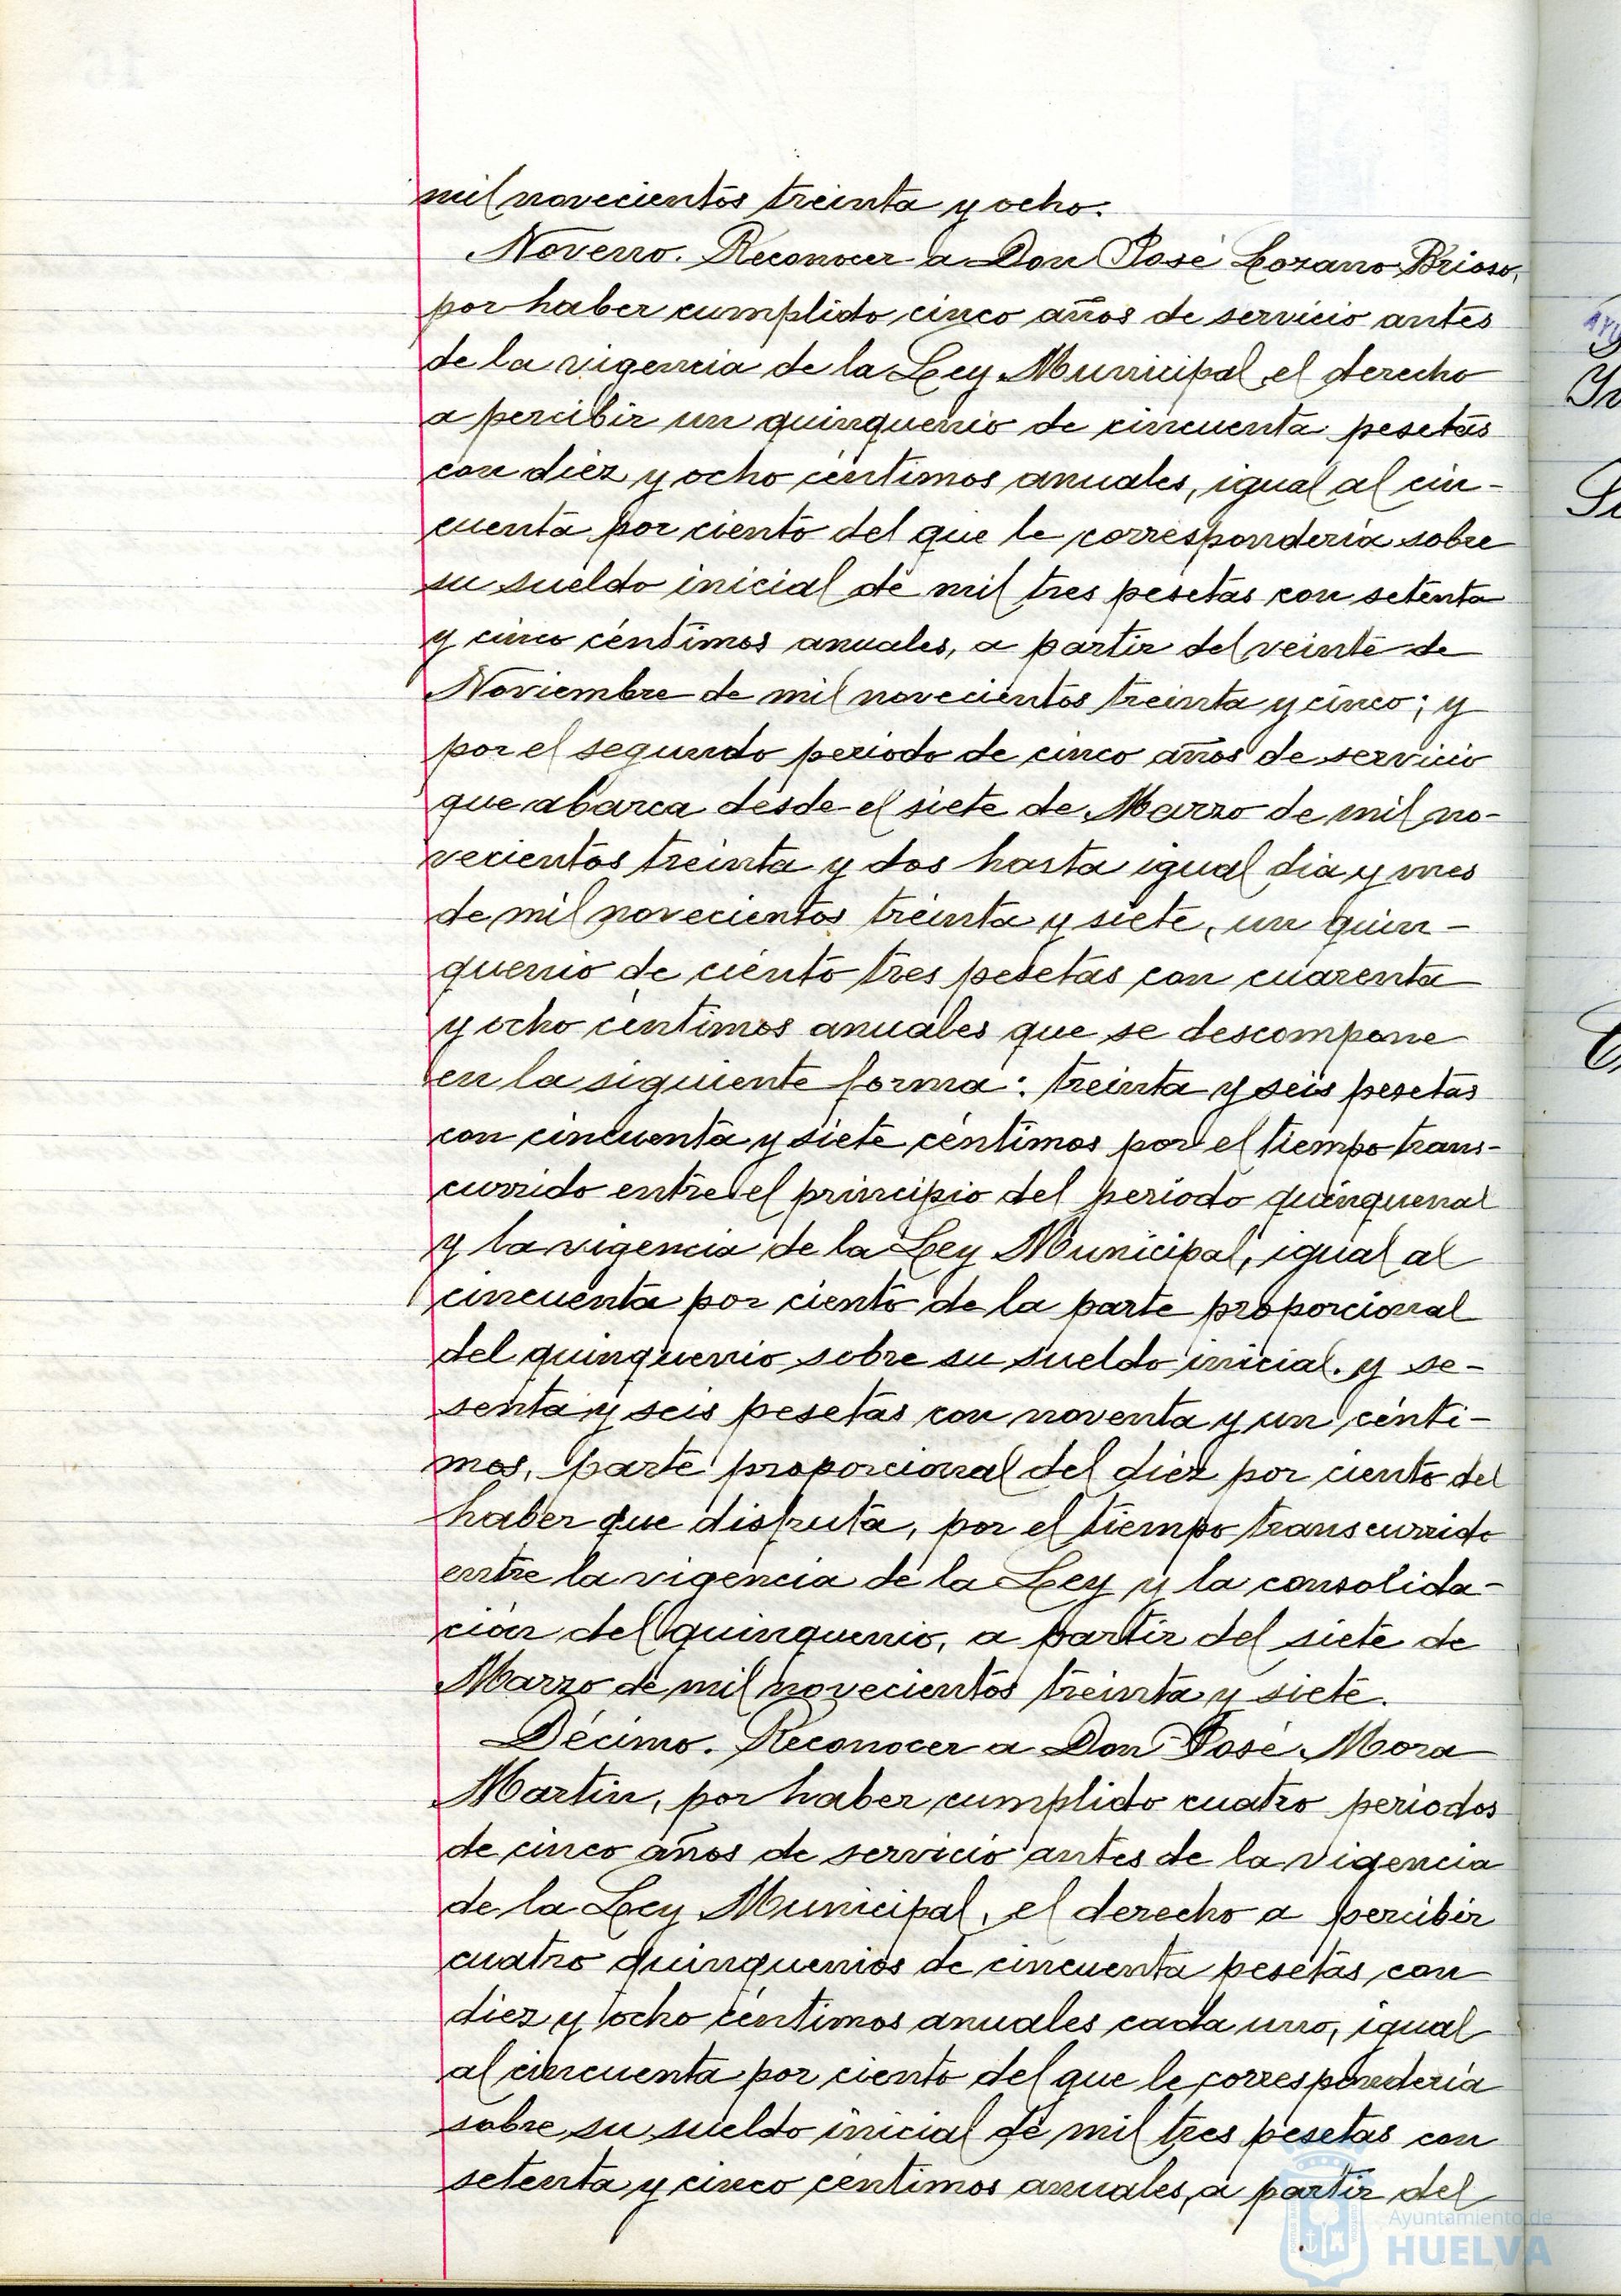 mil novecientos treinta y ocho.
Noveno. Reconocer a Don José Lozano Brioso,
por haber cumplido cinco años de servicio antes
de la vigencia de la Ley Municipal el derecho
a percibir un quinquenio de cincuenta pesetas
con diez y ocho céntimos anuales, igual al cin-
cuenta por ciento del que le correspondería sobre
su sueldo inicial de mil tres pesetas con setenta
y cinco céntimos anuales, a partir del veinte de
Noviembre de mil novecientos treinta y cinco; y
por el segundo periodo de cinco años de servicio
que abarca desde el siete de Marzo de mil no-
vecientos treinta y dos hasta igual día y mes
de mil novecientos treinta y siete, un quin-
quenio de ciento tres pesetas con cuarenta
y ocho céntimos anuales que se descompone
en la siguiente forma: treinta y seis pesetas
con cincuenta y siete céntimos por el tiempo trans-
currido entre el principio del periodo quinquenal
y la vigencia de la Ley Municipal, igual al
cincuenta por ciento de la parte proporcional
del quinquenio sobre su sueldo inicial. y se-
senta y seis pesetas con noventa y un cénti-
mos, parte proporcional del diez por ciento del
haber que disfruta, por el tiempo transcurrido
entre la vigencia de la Ley y la consolida-
ción del quinquenio, a partir del siete de
Marzo de mil novecientos treinta y siete.
Décimo. Reconocer a Don José Mora
Martín, por haber cumplido cuatro periodos
de cinco años de servicio antes de la vigencia
de la Ley Municipal, el derecho a percibir
cuatro quinquenios de cincuenta pesetas con
diez y ocho céntimos anuales cada uno, igual
al cincuenta por ciento del que le correspondería
sobre su sueldo inicial de mil tres pesetas con
setenta y cinco céntimos anuales, a partir del
Ayuntamiento de
HUELVA